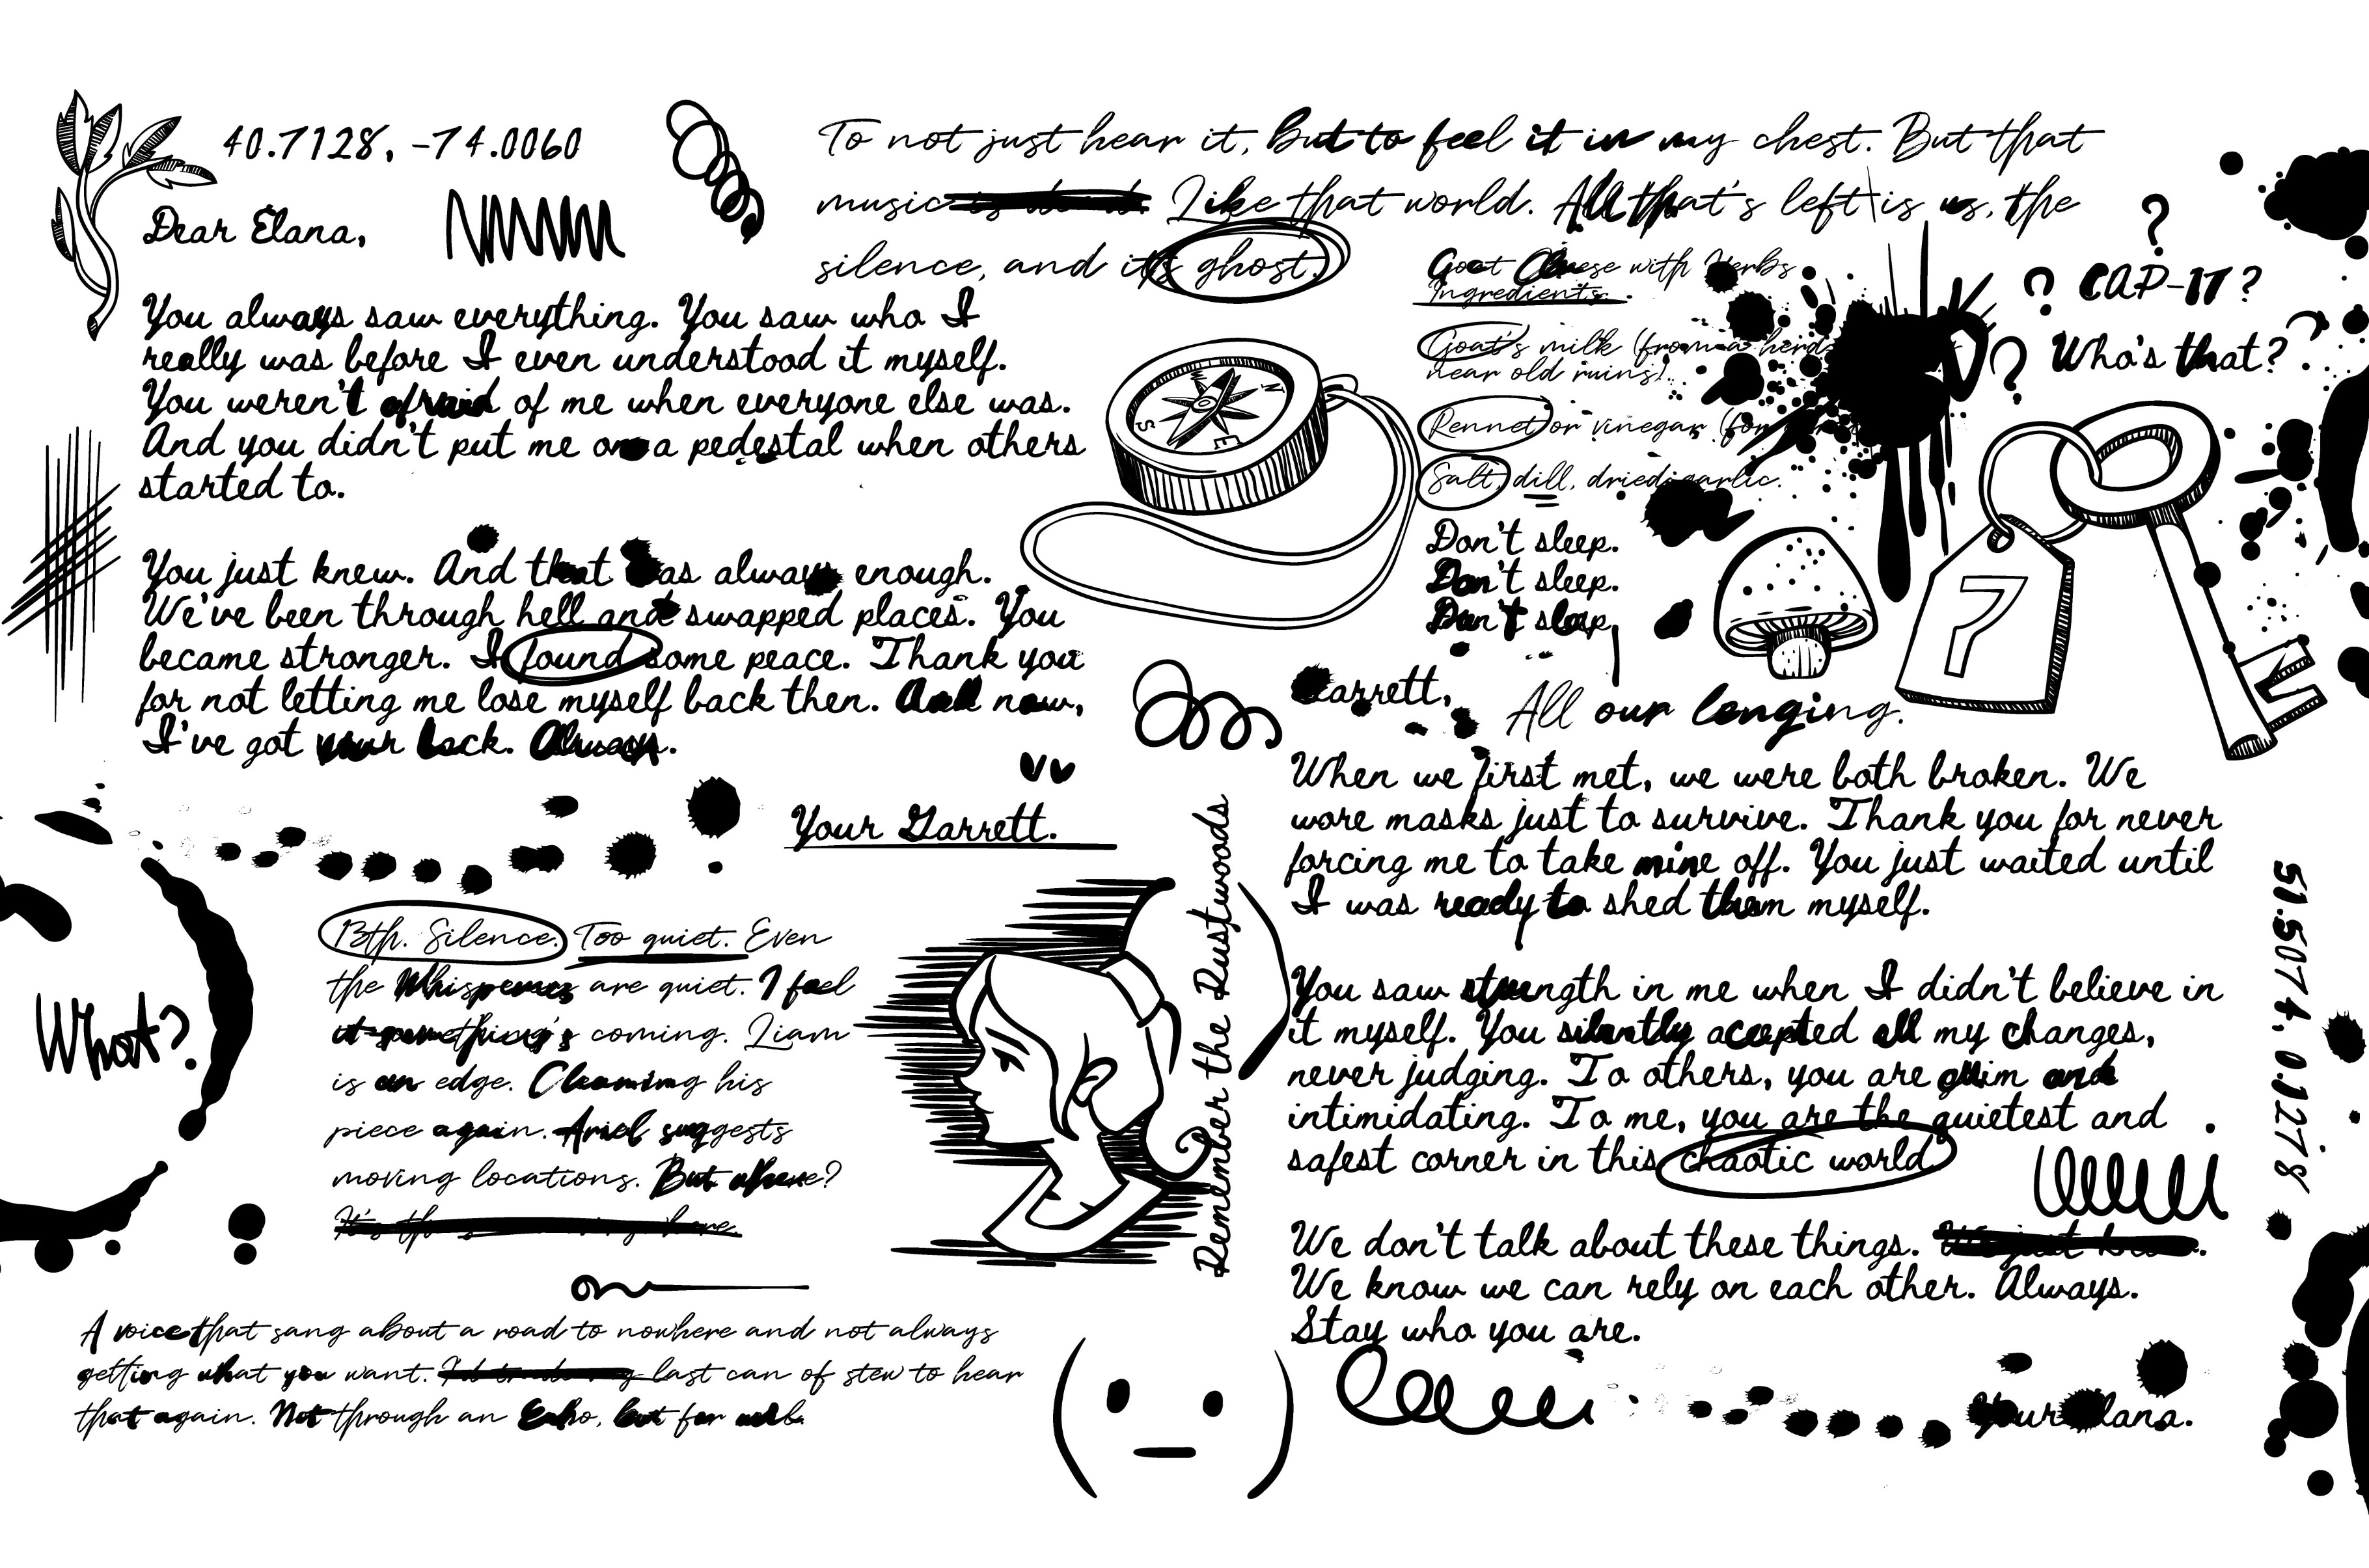 40.7128, -74.0060
Dear Elana,
You always saw everything. You saw who I
really was before I even understood it myself.
You weren't afraid of me when everyone else was.
And you didn't put me on a pedestal when others
started to.
You just knew. And that was always enough.
We've been through hell and swapped places. You
became stronger. I found some peace. Thank you
for not letting me lose myself back then. And now,
I've got your back. Always.
Your Garrett.
To not just hear it, but to feel it in my chest. But that
music is dead. Like that world. All that's left is us, the
silence, and its ghost.
Goat Cheese with Herbs
Ingredients:
Goat's milk (from a herd
near old ruins)
Rennet or vinegar (for
Salt, dill, dried garlic.
Don't sleep.
Don't sleep.
Don't sleep.
? CAP-17?
Who's that?
7
What?
13th. Silence. Too quiet. Even
the Whisperers are quiet. I feel
it something's coming. Liam
is on edge. Cleaning his
piece again. Ariel suggests
moving locations. But where?
A voice that sang about a road to nowhere and not always
getting what you want. last can of stew to hear
that again. Not through an Echo, but for real.
Remember the Rustwoods
Garrett,
All our longing.
When we first met, we were both broken. We
wore masks just to survive. Thank you for never
forcing me to take mine off. You just waited until
I was ready to shed them myself.
You saw strength in me when I didn't believe in
it myself. You silently accepted all my changes,
never judging. To others, you are grim and
intimidating. To me, you are the quietest and
safest corner in this chaotic world
We don't talk about these things. We just know.
We know we can rely on each other. Always.
Stay who you are.
Your Elana.
51.5074, 0.1278